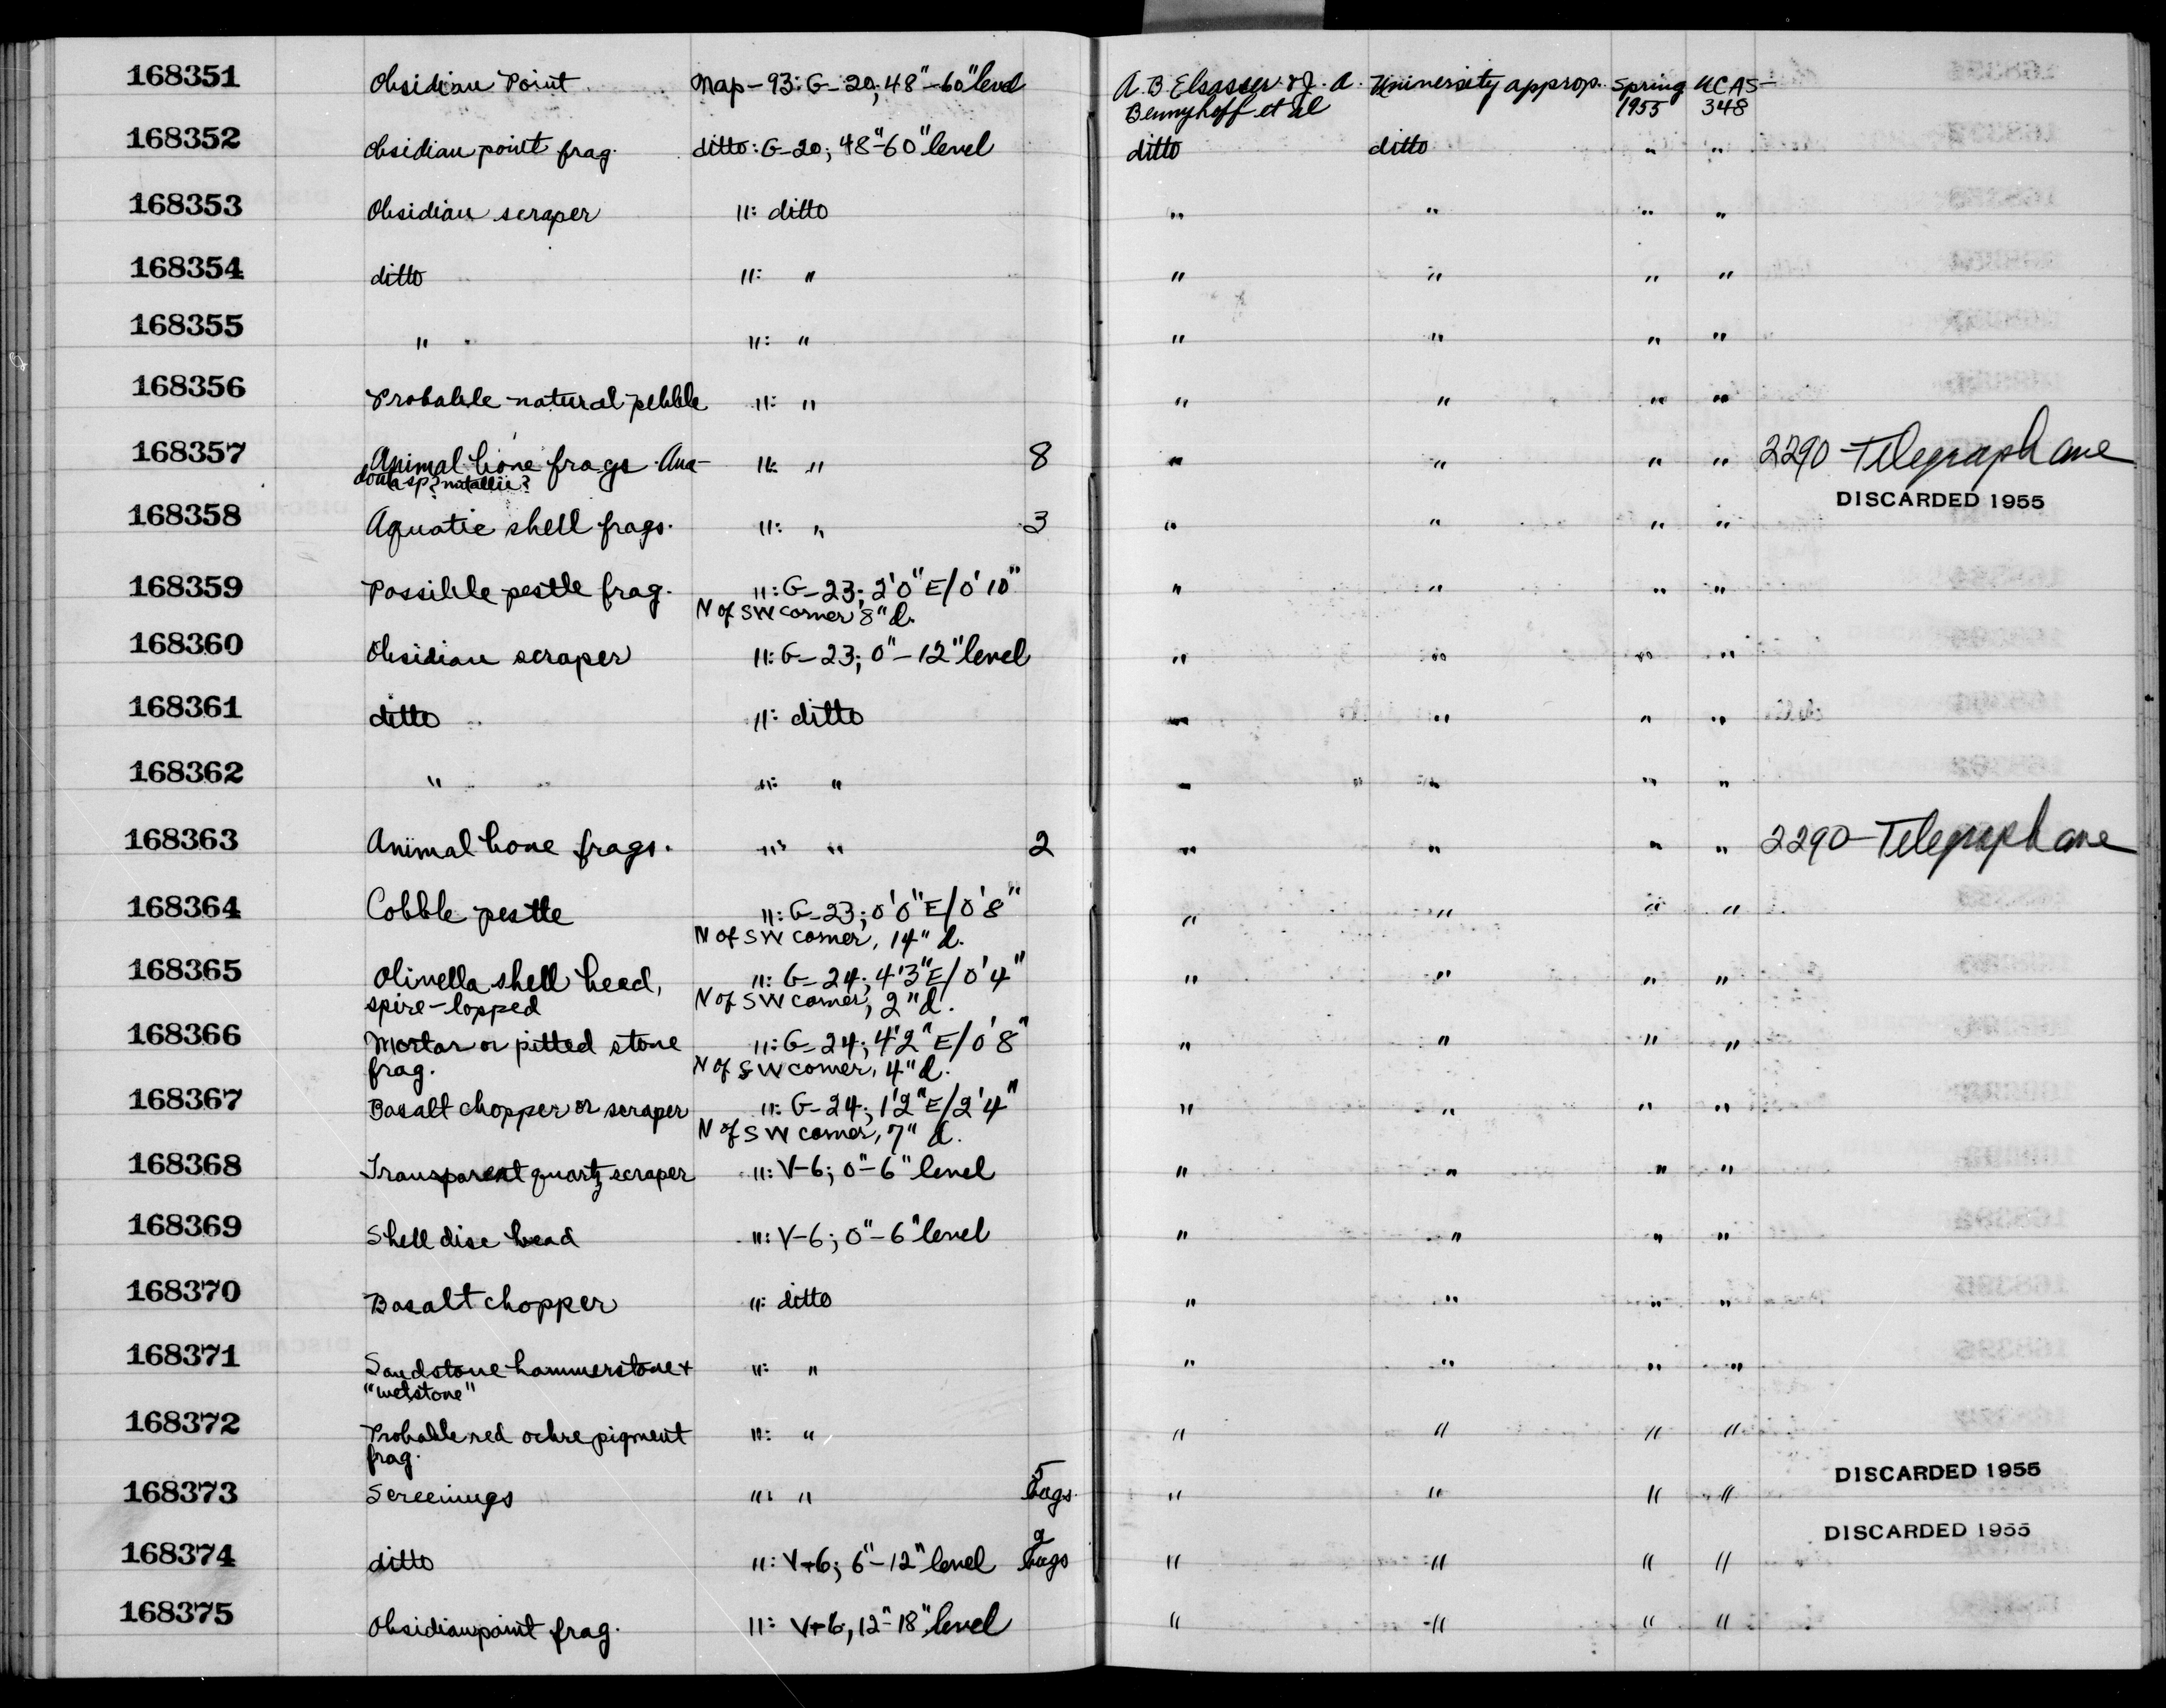 168351 Obsidian Point Nap-93: G-20; 48"-60" level A. B Elsasser & J. A. University approp. Spring UCAS-
Bennyhoff et al 1955 348
168352 Obsidian point frag. ditto: G-20; 48"-60" level ditto ditto " "
168353 Obsidian scraper ": ditto " " " "
168354 ditto ": " " " " "
168355 " ": " " " " "
168356 Probable natural pebble ": " " " " "
168357 Animal bone frags. Ana- ": " 8 " " " " 2290-Telegraph ave
donta sp? nuttallii?
DISCARDED 1955
168358 Aquatic shell frags. ": " 3 " " " "
168359 Possible pestle frag. ": G-23; 2'0" E/0'10" " " " "
N of SW corner 8" d.
168360 Obsidian scraper ": G-23; 0"-12" level " " " "
168361 ditto ": ditto " " " "
168362 " ": " " " " "
168363 Animal bone frags. ": " 2 " " " " 2290-Telegraph ave
168364 Cobble pestle ": G-23; 0'0" E/0'8" " " " "
N of SW corner, 14" d.
168365 Olivella shell bead, ": G-24; 4'3" E/0'4" " " " "
spire-lopped N of SW corner, 2" d.
168366 Mortar or pitted stone ": G-24; 4'2" E/0'8" " " " "
frag. N of SW corner, 4" d.
168367 Basalt chopper or scraper ": G-24; 1'2" E/2'4" " " " "
N of SW corner, 7" d.
168368 Transparent quartz scraper ": V-6; 0"-6" level " " " "
168369 Shell disc bead ": V-6; 0"-6" level " " " "
168370 Basalt chopper ": ditto " " " "
168371 Sandstone hammerstone + ": " " " " "
"wetstone"
168372 Probable red ochre pigment ": " " " " "
frag.
DISCARDED 1955
168373 Screenings ": " 5 bags " " " "
DISCARDED 1955
168374 ditto ": V-6; 6"-12" level bags " " " "
168375 Obsidian point frag. ": V-6, 12"-18" level " " " "